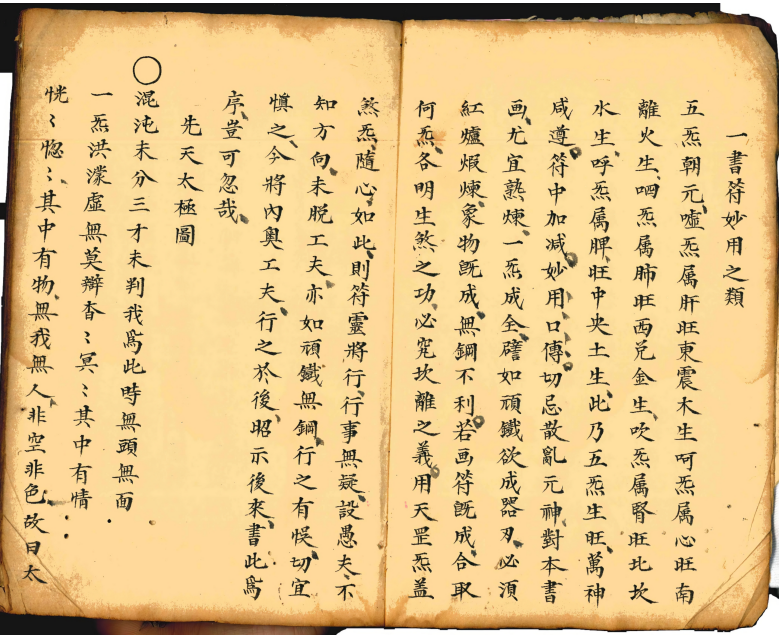 一書符妙用之類
五炁朝元噓炁属肝旺東震木生呵炁属心旺南
離火生呬炁属肺旺西兑金生吹炁属腎旺北坎
水生呼炁属脾旺中央土生此乃五炁生旺萬神
咸遵符中加减妙用口傳切忌散亂元神對本書
画尤宜熟煉一炁成全譬如頑鐵欲成器刃必湏
紅爐煆煉象物旣成無鋼不利若画符旣成合取
何炁各明生煞之功必究坎離之義用天罡炁盖
煞炁隨心如此則符靈將行行事無疑設愚夫不
知方向未脱工夫亦如頑鐵無鋼行之有悞切宜
慎之今將內奥工夫行之於後昭示後來書此爲
序豈可忽哉
先天太極圖
○混沌未分三才未判我爲此時無頭無面
一炁洪濛虛無莫辯杳〻冥〻其中有情
恍〻惚〻其中有物無我無人非空非色故曰太